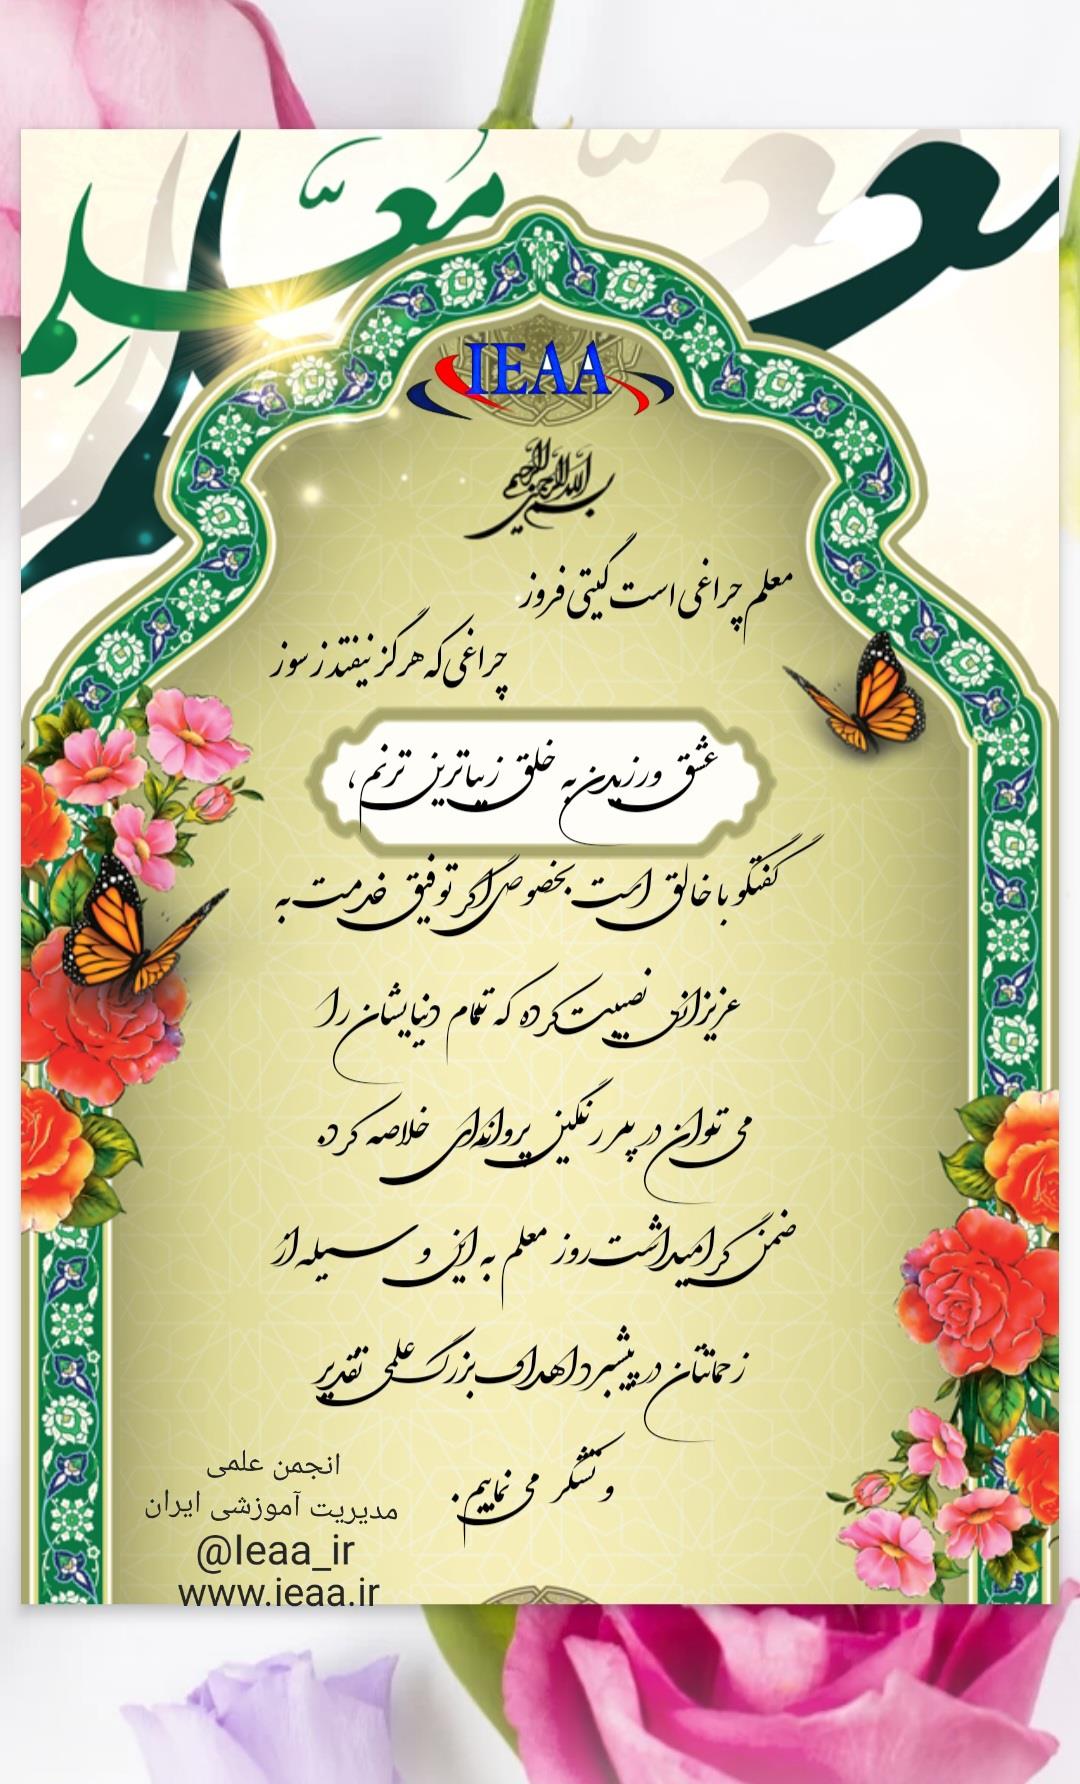 معلم
معلم
IEAA
بسم الله الرحمن الرحیم
معلم چراغی است گیتی فروز
چراغی که هرگز نیفتد ز سوز
عشق ورزیدن به خلق زیباترین ترنم،
گفتگو با خالق است بخصوص اگر توفیق خدمت به
عزیزانی نصیبت کرده که تمام دنیایشان را
می توان در پر رنگین پروانه‌ای خلاصه کرد.
ضمن گرامیداشت روز معلم به این وسیله از
زحماتتان در پیشبرد اهداف بزرگ علمی تقدیر
و تشکر می نماییم.
انجمن علمی
مدیریت آموزشی ایران
@Ieaa_ir
www.ieaa.ir